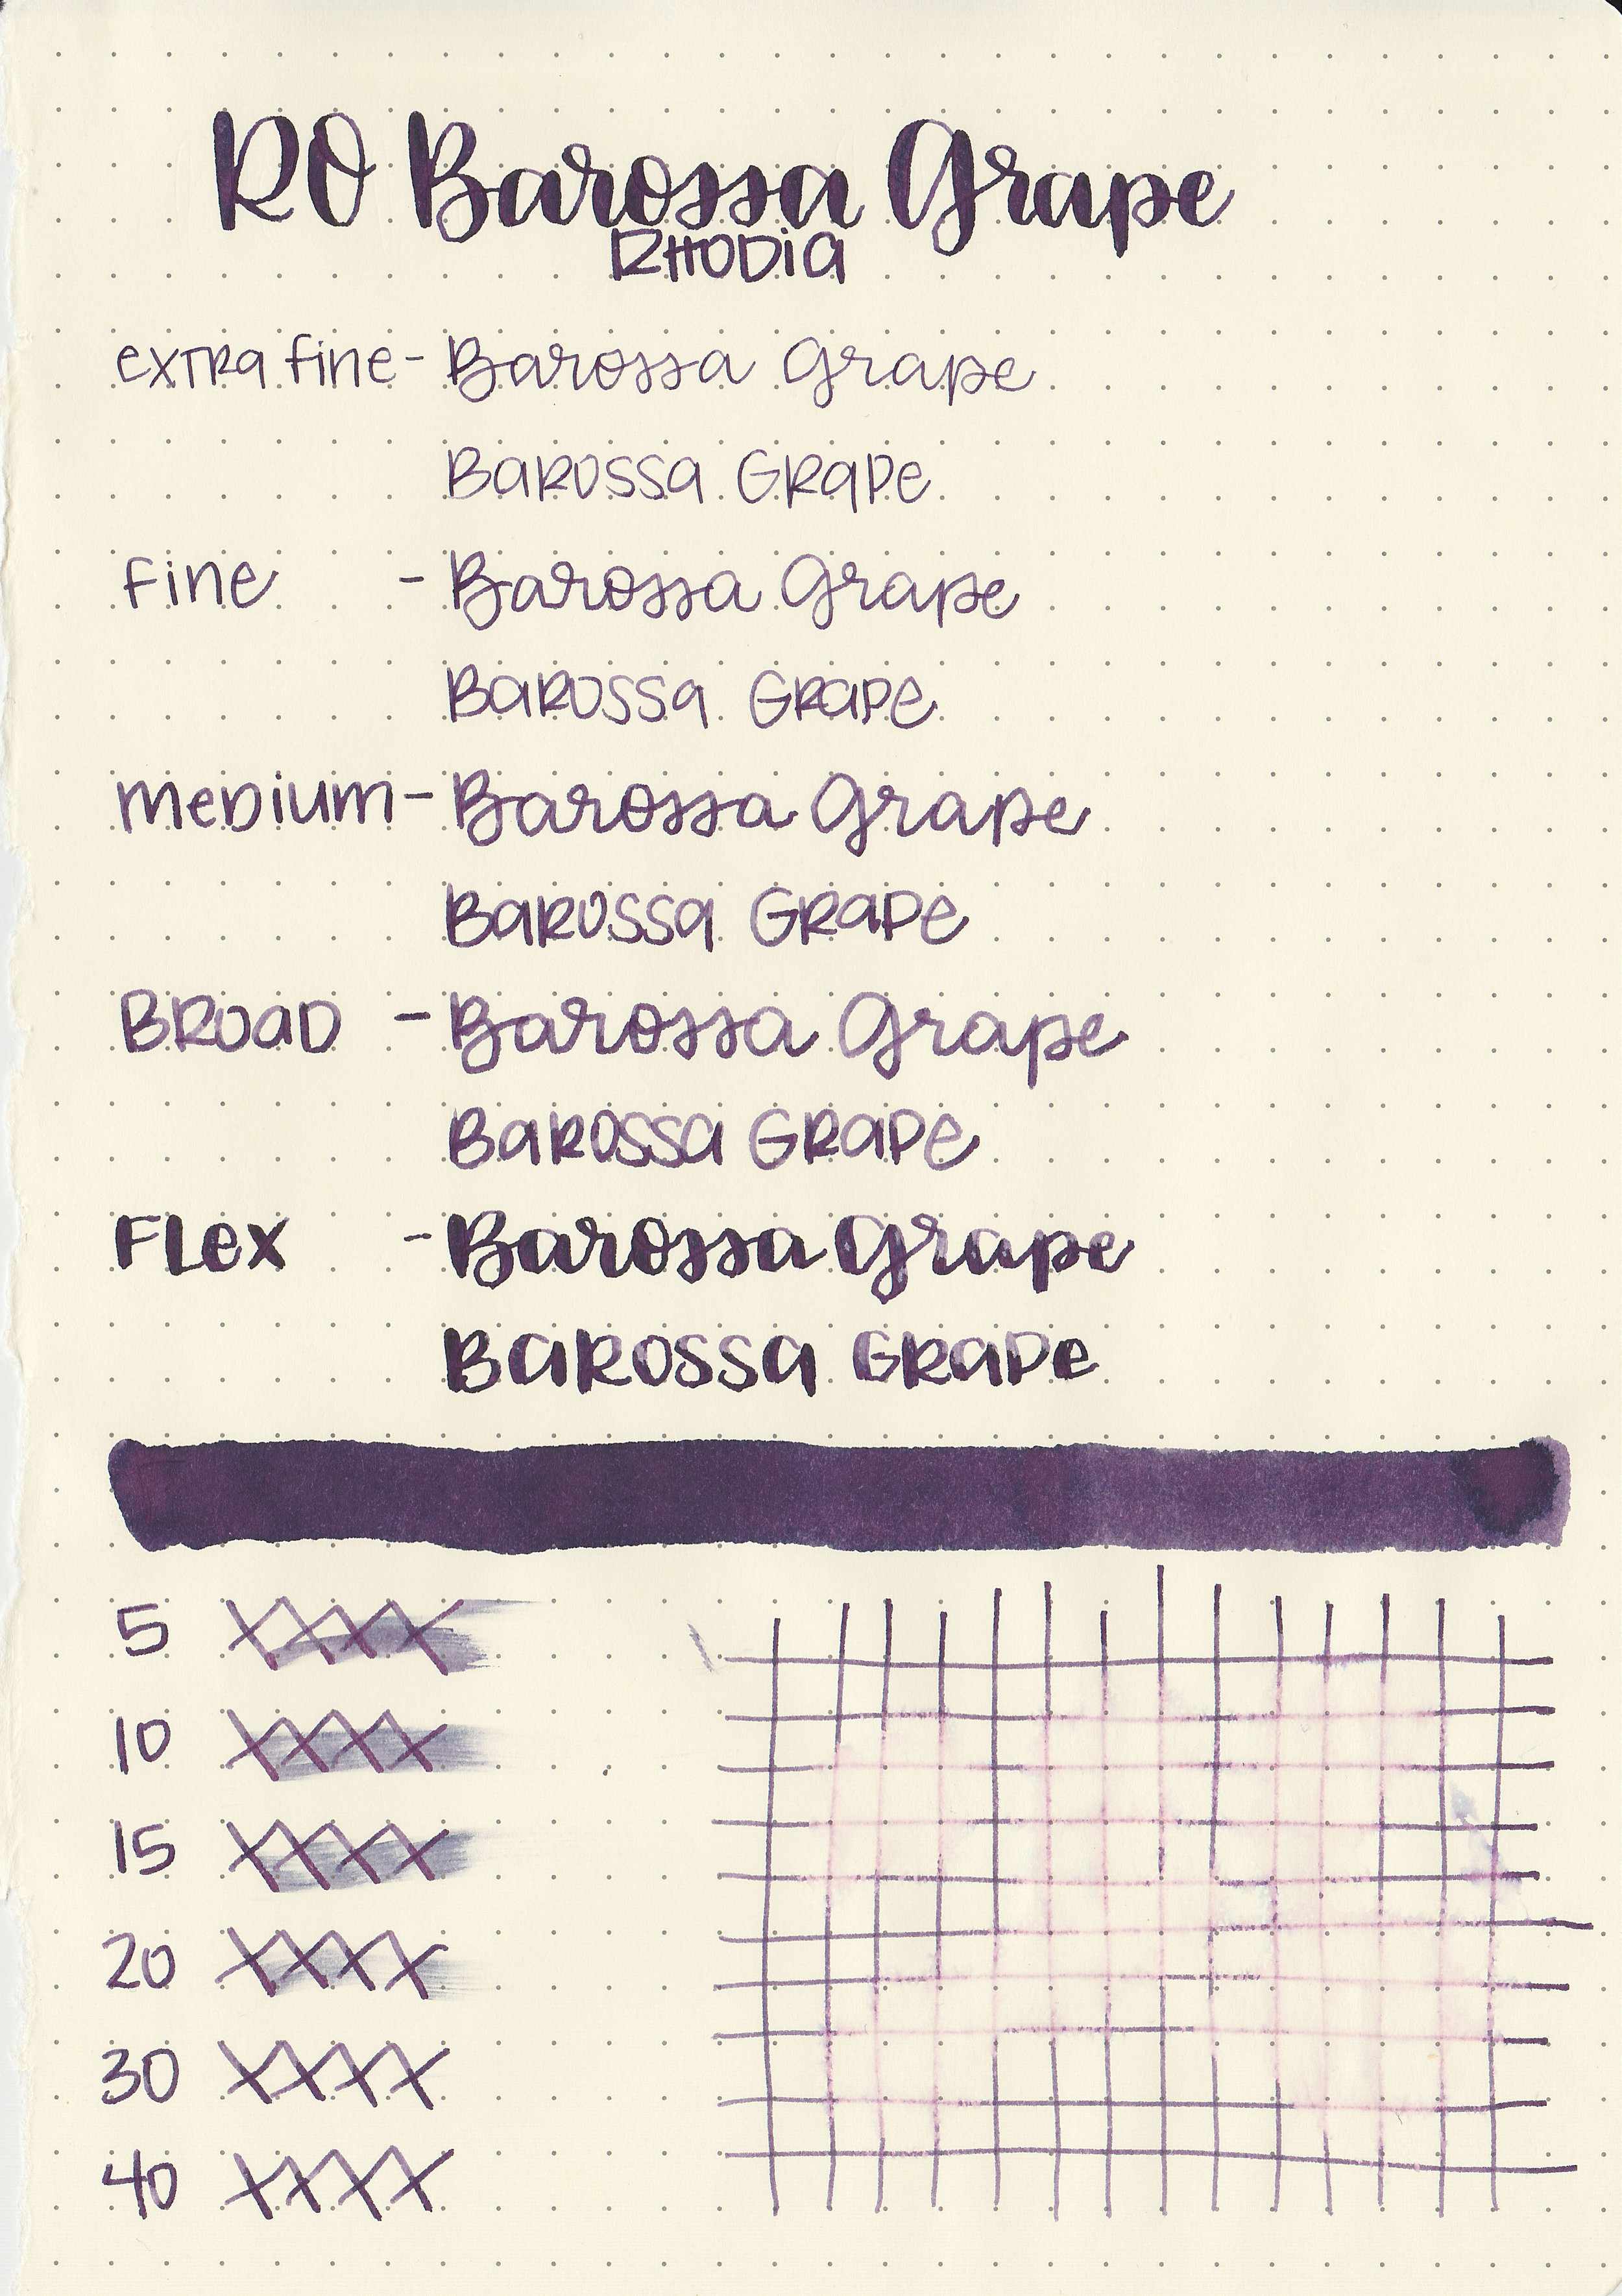 RO Barossa Grape
RHODIA
extra fine - Barossa Grape
Barossa Grape
Fine - Barossa Grape
Barossa Grape
Medium - Barossa Grape
Barossa Grape
Broad - Barossa Grape
Barossa Grape
Flex - Barossa Grape
Barossa Grape
5 XXXX
10 XXXX
15 XXXX
20 XXXX
30 XXXX
40 XXXX